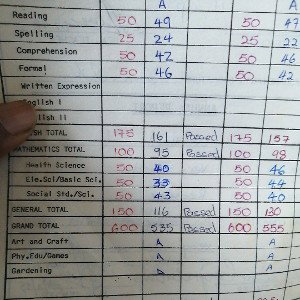 A A
Reading 50 49 50 47
Spelling 25 24 25 22
Comprehension 50 42 50 46
Formal 50 46 50 42
Written Expression
English I
lish II
SH TOTAL 175 161 Passed 175 157
MATHEMATICS TOTAL 100 95 Passed 100 98
Health Science 50 40 50 46
Ele.Sci/Basic Sci. 50 33 50 44
Social Std./Sci. 50 43 50 40
GENERAL TOTAL 150 116 Passed 150 130
GRAND TOTAL 600 535 Passed 600 555
Art and Craft A A
Phy.Edu/Games A A
Gardening A A